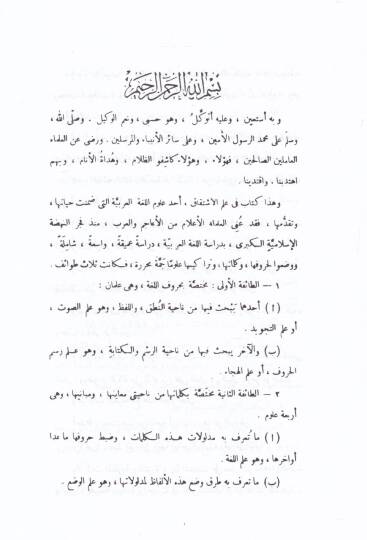 بسم الله الرحمن الرحيم
و به أستعين ، وعليه أتوكَّلُ ، وهو حسبى ، ونعم الوكيل . وصلَّى الله ،
وسلم على محمد الرسول الأمين ، وعلى سائر الأنبياء والمرسلين . ورضى عن العلماء
العاملين الصالحين ، فهؤلاء ، وهؤلاء كاشفو الظلام ، وهُداةُ الأنام ، وبهم
اهتدينا . واقتدينا .
وهذا كتاب فى علم الاشتقاق ، أحد علوم اللغة العربيَّة التى ضمنت حياتها ،
وتقدُّمها ، فقد عُنِى العلماء الأعلام من الأعاجم والعرب ، منذ فجر النهضة
الإسلاميَّة الكبرى ، بدراسة اللغة العربيَّة ، دراسة عميقةً ، واسعةً ، شاملةً ،
ووضعوا لحروفها ، وكلماتها ، وتراكيبها علومًا جَمَّةً محررة ، فكانت ثلاث طوائف .
١ — الطائفة الأولى : مختصَّة بحروف اللغة ، وهى علمان :
( ا ) أحدهما يَبْحث فيها من ناحية النُّطق ، واللفظ ، وهو علم الصوت ،
أو علم التجويد .
(ب) والآخر يبحث فيها من ناحية الرسْم والكتابة ، وهو علم رسم
الحروف ، أو علم الهجاء .
٢ — الطائفة الثانية مختصَّة بكلماتها من ناحيتى معاينها ، ومبانيها ، وهى
أربعة علوم .
( ا ) ما تُعرف به مدلولات هذه الكلمات ، وضبط حروفها ما عدا
أواخرها ، وهو علم اللغة .
(ب) ما تعرف به طرق وضع هذه الألفاظ لمدلولاتها ، وهو علم الوضع .